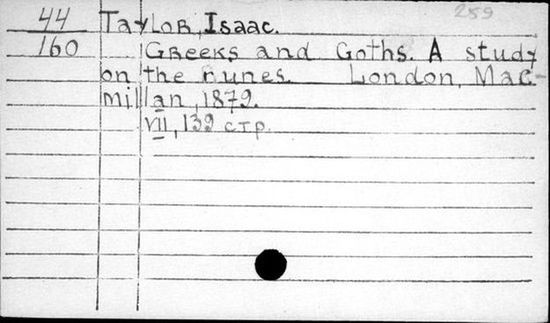 44 Taylor, Isaac. 289
160 Greeks and Goths. A study
on the runes. London, Mac-
millan, 1879.
VII, 139 стр.